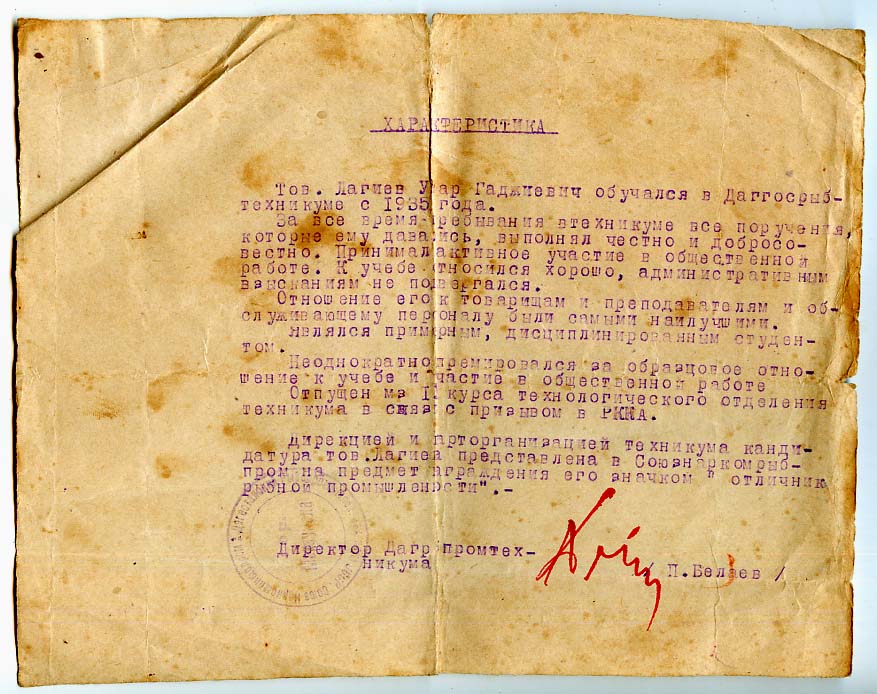 ХАРАКТЕРИСТИКА
Тов. Лагиев Гаджиевич обучался в Даггосрыб-
техникуме с 1935 года.
За все время ребывания втехникуме все поручения,
которые ему давались, выполнял честно и добросо-
вестно. Принимал активное участие в общественной
работе. К учебе относился хорошо, административным
взысканиям не подвергался.
Отношение его к товарищам и преподавателям и об-
служивающему персоналу были самыми наилучшими.
Являлся примерным, дисциплинированным студен-
том.
Неоднократно премировался за образцовое отно-
шение к учебе и участие в общественной работе
Отпущен курса технологического отделения
техникума в с призывом в РККА.
дирекцией и арторганизацией техникума канди-
датура тов. Лагиеа представлена в Союзнаркомрыб-
пром на предмет аграждения его значком " отличник
рыбной промышлености".-
Директор Дагр промтех-
никума / П.Беляев /